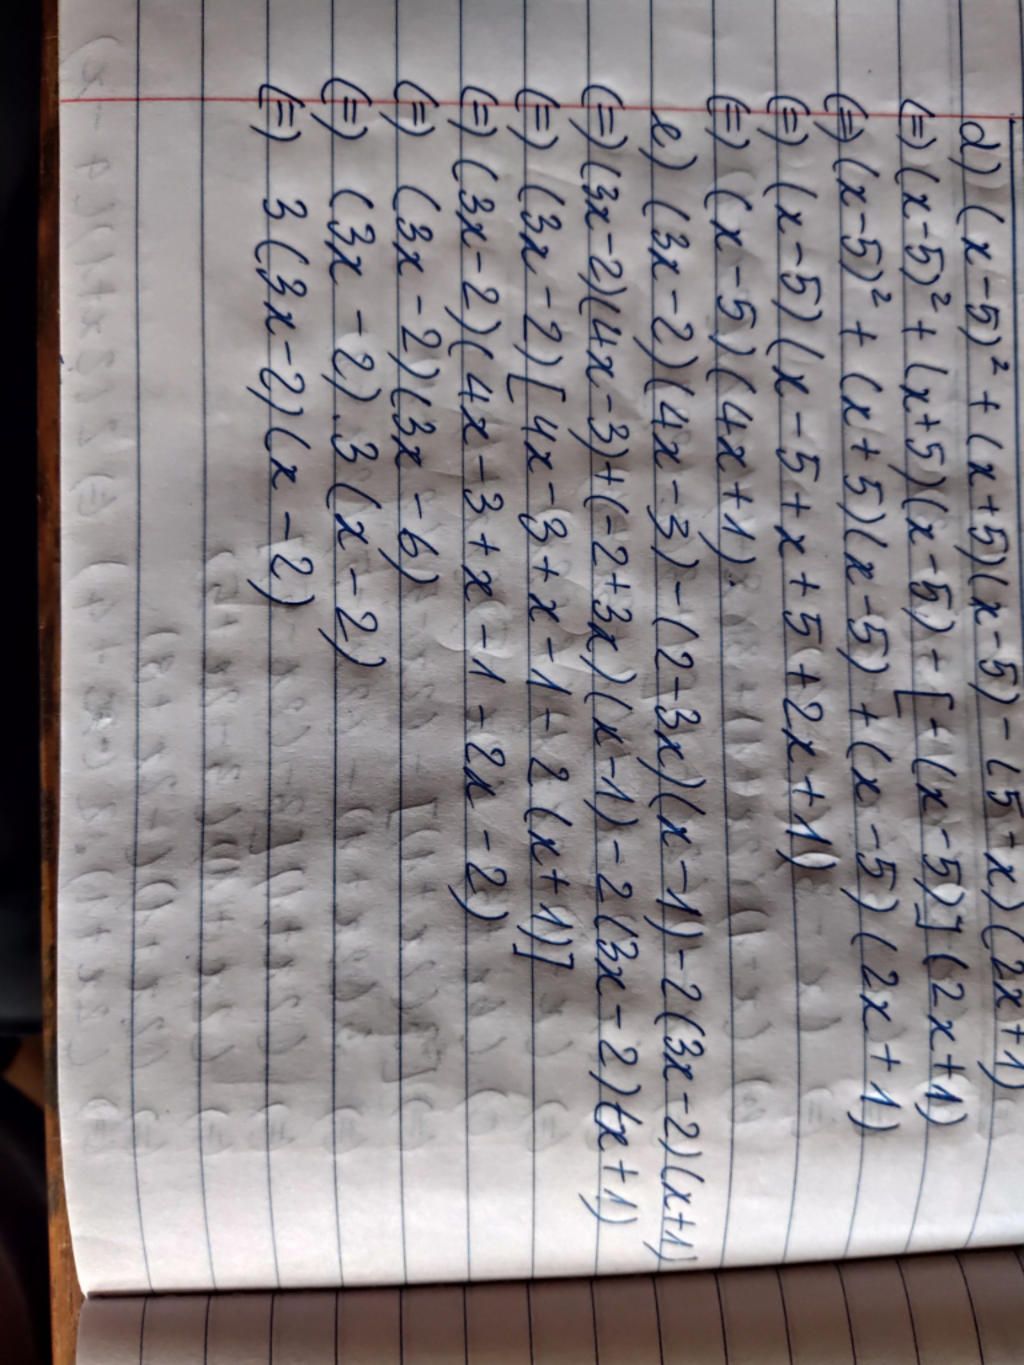 d) (x-5)² + (x+5)(x-5) - (5-x)(2x+1)
(=) (x-5)² + (x+5)(x-5) - [-(x-5)] (2x+1)
(=) (x-5)² + (x+5)(x-5) + (x-5)(2x+1)
(=) (x-5)(x-5+x+5+2x+1)
(=) (x-5)(4x+1).
e) (3x-2)(4x-3) - (2-3x)(x-1) - 2(3x-2)(x+1)
(=) (3x-2)(4x-3) + (-2+3x)(x-1) - 2(3x-2)(x+1)
(=) (3x-2)[4x-3+x-1-2(x+1)]
(=) (3x-2)(4x-3+x-1-2x-2)
(=) (3x-2)(3x-6)
(=) (3x-2).3(x-2)
(=) 3(3x-2)(x-2)